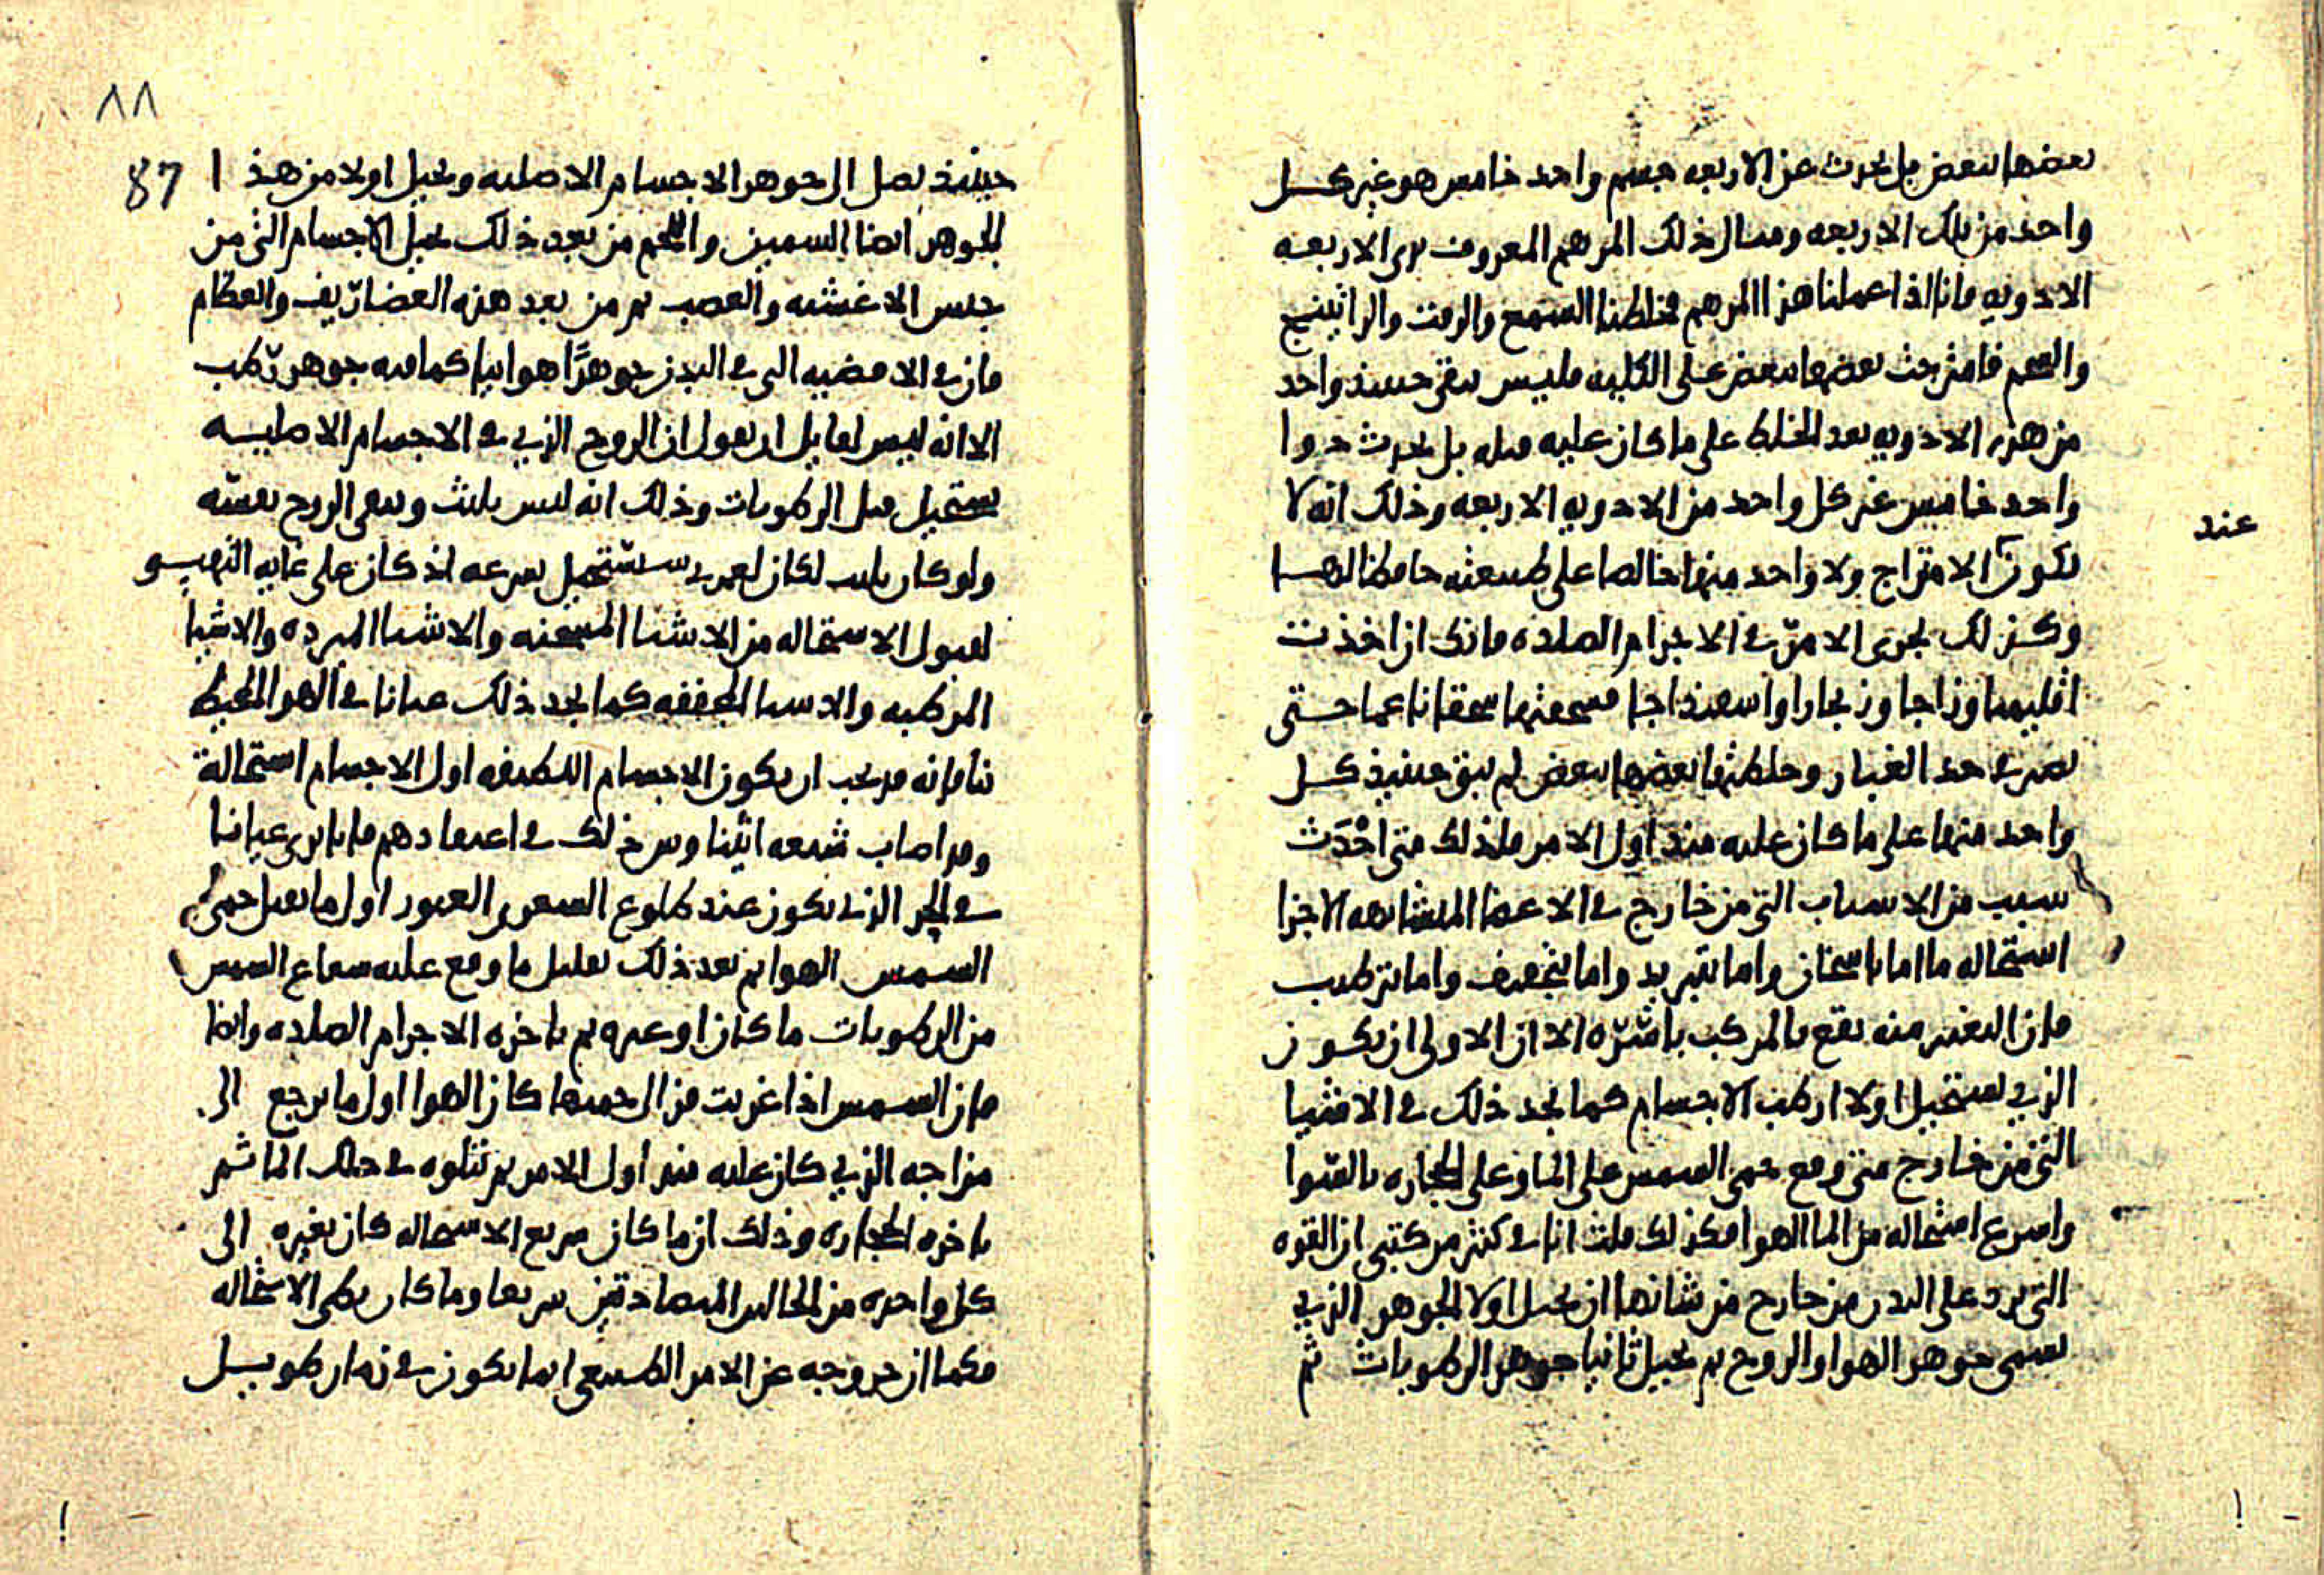 بعضها ببعض بل يحدث عن الاربعه جسم واحد خامس هو غير كل
واحد من تلك الاربعه ومثال ذلك المرهم المعروف بذي الاربعه
الادويه فانا اذا عملنا هذا المرهم فخلطنا الشمع والزفت والراتينج
والشحم فامتزجت بعضها ببعض على الكليه فليس يبقى حينئذ واحد
من هذه الادويه بعد الخلط على ما كان عليه قبله بل يحدث دوا
واحد خامس غير كل واحد من الادويه الاربعه وذلك انه لا
عند
يكون الامتزاج ولا واحد منها خالصا على طبيعته حافظا لها
وكذلك يجري الامر في الاجرام الصلده فانك ان اخذت
اقليميا وزاجا وزنجارا واسفيذاجا فسحقتها سحقا ناعما حتى
تصير في حد الغبار وخلطتها بعضها ببعض لم يبق حينئذ كل
واحد منها على ما كان عليه منذ اول الامر فلذلك متى احدث
سبب من الاسباب التي من خارج في الاعضا المتشابهه الاجزا
استحاله ما اما باسخان واما بتبريد واما بتجفيف واما بترطيب
فان التغير منه يقع بالمركب باسره الا ان الاولى ان يكون
الذي يستحيل اولا اركب الاجسام كما نجد ذلك في الاشيا
التي من خارج متى وقع حمى الشمس على الما وعلى الحجاره بالسوا
واسرع استحاله من الما الهوا فكذلك قلت انا في كثير من كتبي ان القوه
التي ترد على البدن من خارج من شانها ان تحيل اولا الجوهر الذي
يسمى جوهر الهوا والروح ثم تحيل ثانيا جوهر الرطوبات ثم
٨٨
87
حينئذ يصل الى جوهر الاجسام الاصليه ويحيل اولا من هذا
الجوهر ايضا السمين واللحم من بعد ذلك يحيل الاجسام التي من
جنس الاغشيه والعصب ثم من بعد هذه الغضاريف والعظام
فان في الافضيه التي في البدن جوهرًا هوائيا كما فيه جوهر رطب
الا انه ليس لقايل ان يقول ان الروح الذي في الاجسام الاصليه
يستحيل قبل الرطوبات وذلك انه ليس يلبث ويبقى الروح بعينه
ولو كان يلبث لكان لعمري سيستحيل بسرعه اذ كان على غايه التهيو
لقبول الاستحاله من الاشيا المسخنه والاشيا المبرده والاشيا
المرطبه والاشيا المجففه كما نجد ذلك عيانا في الهوا المحيط
بنا فانه قد يجب ان يكون الاجسام اللطيفه اول الاجسام استحالة
وقد اصاب شيعه اثينا وس ذلك في اعتقادهم فانا نرى عيانا
في الحر الذي يكون عند طلوع الشعرى العبور اول ما يقبل حمى
الشمس الهوا ثم بعد ذلك بقليل ما وقع عليه شعاع الشمس
من الرطوبات ما كان او غيره ثم باخره الاجرام الصلده وايضا
فان الشمس اذا غربت من الى حميها كان الهوا اول ما يرجع الى
مزاجه الذي كان عليه منذ اول الامر ثم يتلوه في ذلك الما ثم
باخره الحجاره وذلك ان ما كان سريع الاستحاله كان تغيره الى
كل واحده من الحالتين المتضادتين سريعا وما كان بطي الاستحاله
فكما ان خروجه عن الامر الطبيعي انما يكون في زمان طويل